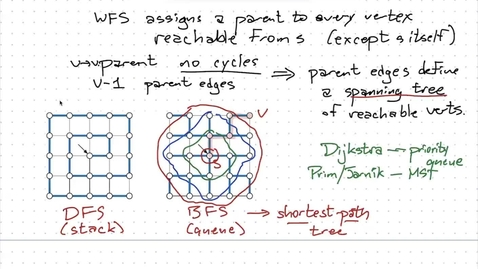 WFS assigns a parent to every vertex
reachable from s (except s itself)
v→vparent no cycles
V-1 parent edges
⟹ parent edges define
a spanning tree
of reachable verts.
V
S
Dijkstra — priority
queue
Prim/Jarník — MST
DFS
(stack)
BFS
(queue)
→ shortest path
tree